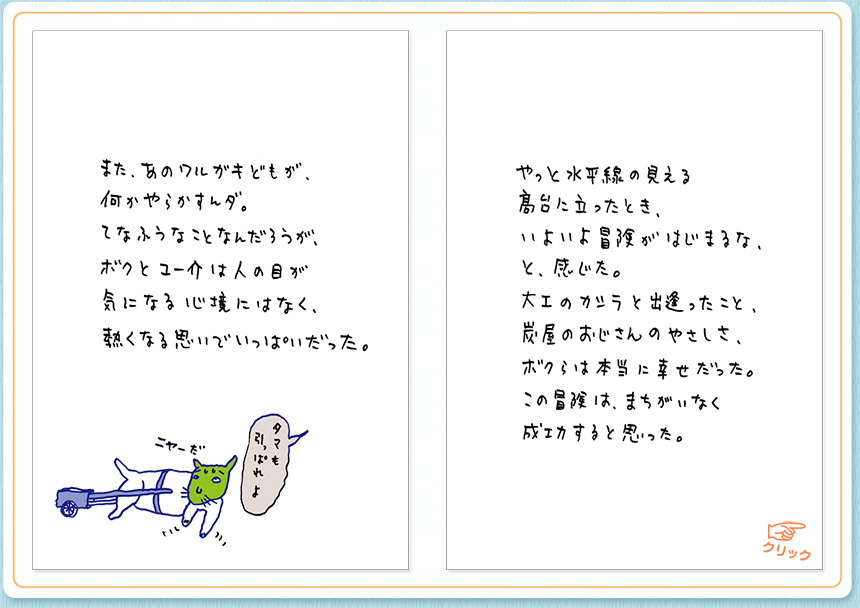 また、あのワルガキどもが、
何かやらかすんダ。
てなふうなことなんだろうが、
ボクとユー介は人の目が
気になる心境にはなく、
熱くなる思いでいっぱいだった。
ニャーだ
タマも
引っぱれよ
やっと水平線の見える
高台に立ったとき、
いよいよ冒険がはじまるな、
と、感じた。
大工のカシラと出逢ったこと、
炭屋のおじさんのやさしさ、
ボクらは本当に幸せだった。
この冒険は、まちがいなく
成功すると思った。
クリック